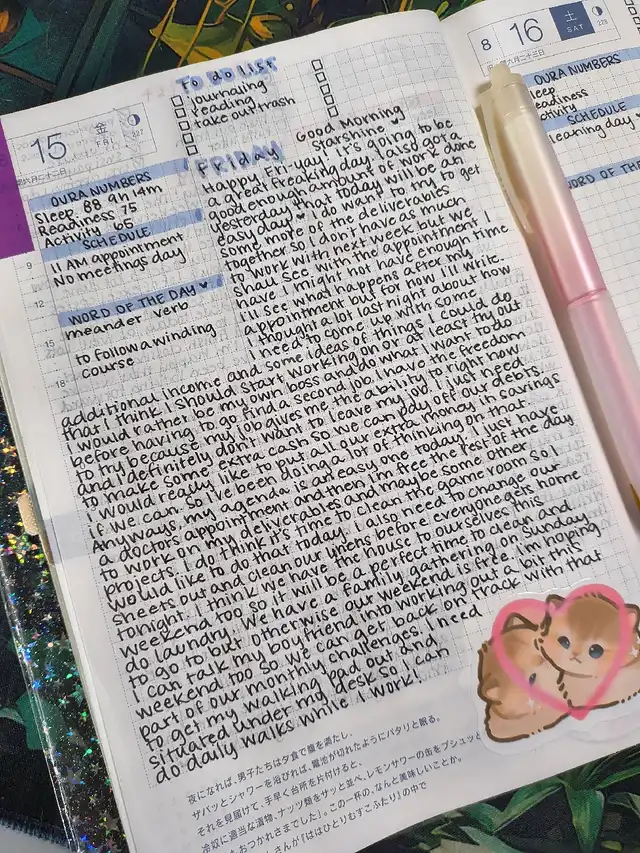 TO DO LIST
journaling
reading
take out trash
15
金
FRI
227
OURA NUMBERS
Sleep: 88 9h 4m
Readiness 75
Activity 65
SCHEDULE
9
11 AM appointment
No meetings day
12
WORD OF THE DAY ♥
meander verb
15
to follow a winding
course
18
Good Morning
Starshine
FRIDAY
Happy Fri-yay! It's going to be
a great freaking day. I also got a
good enough amount of work done
yesterday that today will be an
easy day ♥ I do want to try to get
some more of the deliverables
together so I don't have as much
to work with next week but we
shall see with the appointment I
have I might not have enough time
I'll see what happens after my
appointment but for now I'll write.
I thought a lot last night about how
I need to come up with some
additional income and some ideas of things I could do
that I think I should start working on or at least try out
I would rather be my own boss and do what I want to do
before having to go find a second job. I have the freedom
to try because my job gives me the ability to right now
and I definitely don't want to leave my job I just need
to make some extra cash so we can pay off our debts.
I would really like to put all our extra money in savings
if we can. So I've been doing a lot of thinking on that.
Anyways, my agenda is an easy one today! I just have
a doctors appointment and then im free the rest of the day
to work on my deliverables and maybe some other
projects. I do think it's time to clean the game room so I
would like to do that today. I also need to change our
sheets out and clean our linens before everyone gets home
tonight. I think we have the house to ourselves this
weekend too so it will be a perfect time to clean and
do laundry. We have a family gathering on Sunday
to go to but otherwise our weekend is free. im hoping
I can talk my boyfriend into working out a bit this
weekend too so we can get back on track with that
part of our monthly challenges. I need
to get my walking pad out and
situated under my desk so I can
do daily walks while I work!
夜になれば、男子たちは夕食で腹を満たし、
ザバッとシャワーを浴びれば、電池が切れたようにパタリと眠る。
それを見届けて、手早く台所を片付けると、
冷奴に適当な漬物、ナッツ類をサッと並べ、レモンサワーの缶をプシュッと
おつかれさまでした」。この一杯の、なんと美味しいことか。
さんが『ははひとりむすこふたり』の中で
8
16
土
SAT
228
OURA NUMBERS
Sleep
Readiness
Activity
SCHEDULE
cleaning day ♥
WORD OF THE